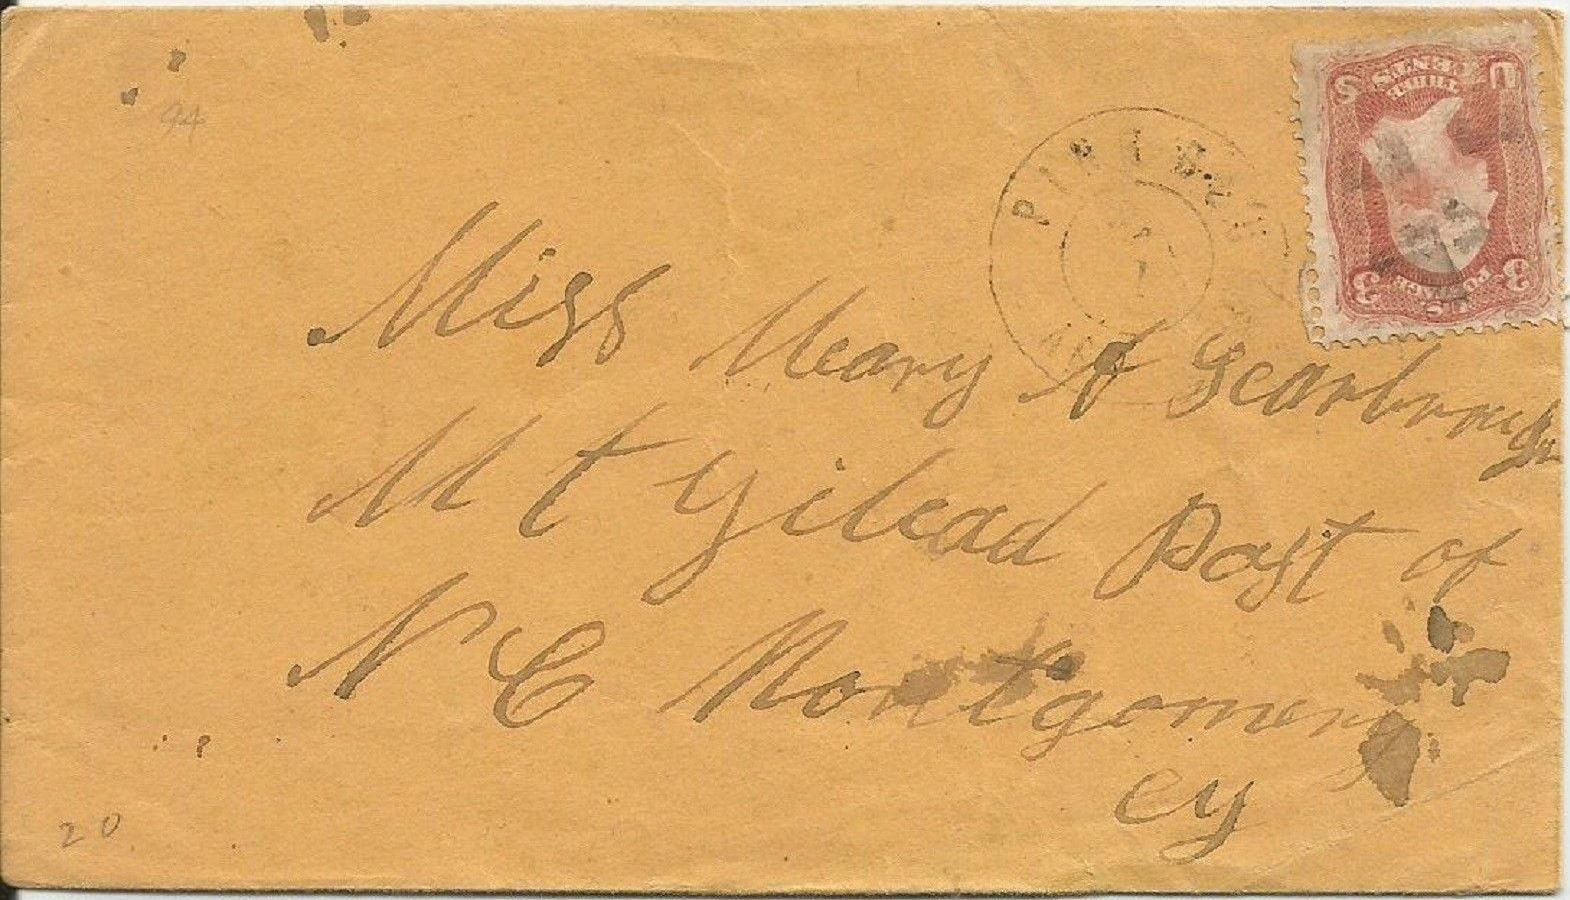 94
Miss Meary A Scarbrough
Mt Gilead Post of
N C Montgomery
cy
20
U S
THREE CENTS
U.S. POSTAGE
3 3